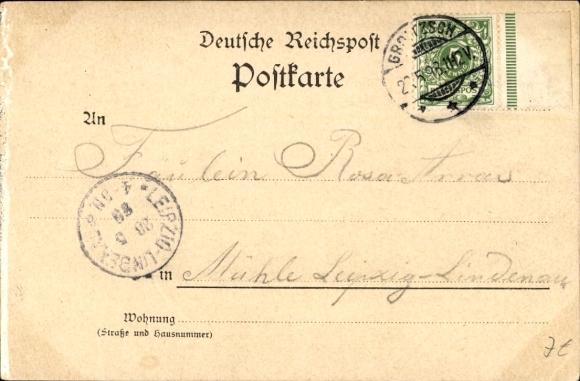 Deutsche Reichspost
Postkarte
GROITZSCH
An
Fräulein Rosa
LEIPZIG-LINDENAU
4-5N
in Mühle Leipzig-Lindenau
Wohnung
(Straße und Hausnummer)
7€